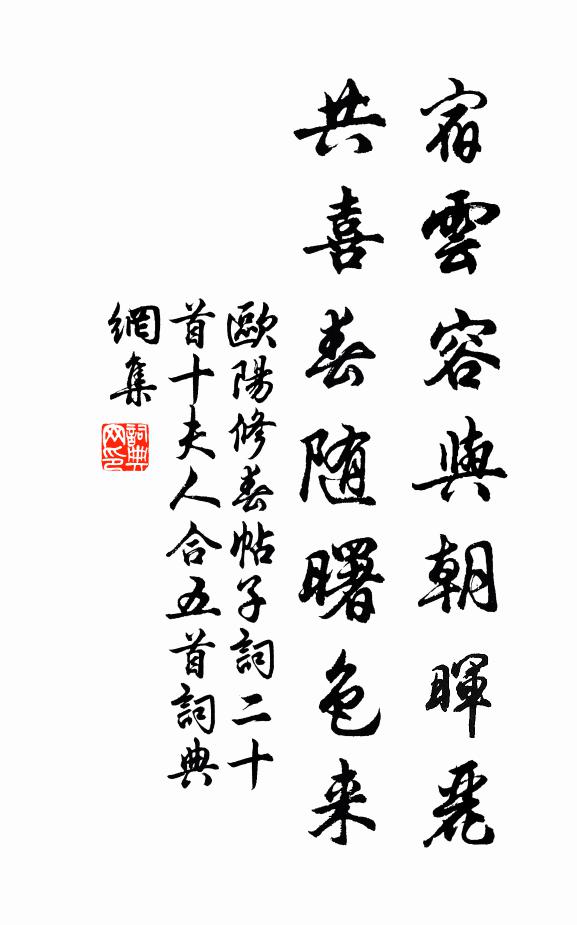 宿雲容與朝暉麗
共喜春随曙色来
歐陽修春帖子詞二十
首十夫人合五首詞典
網集
詞典
网印